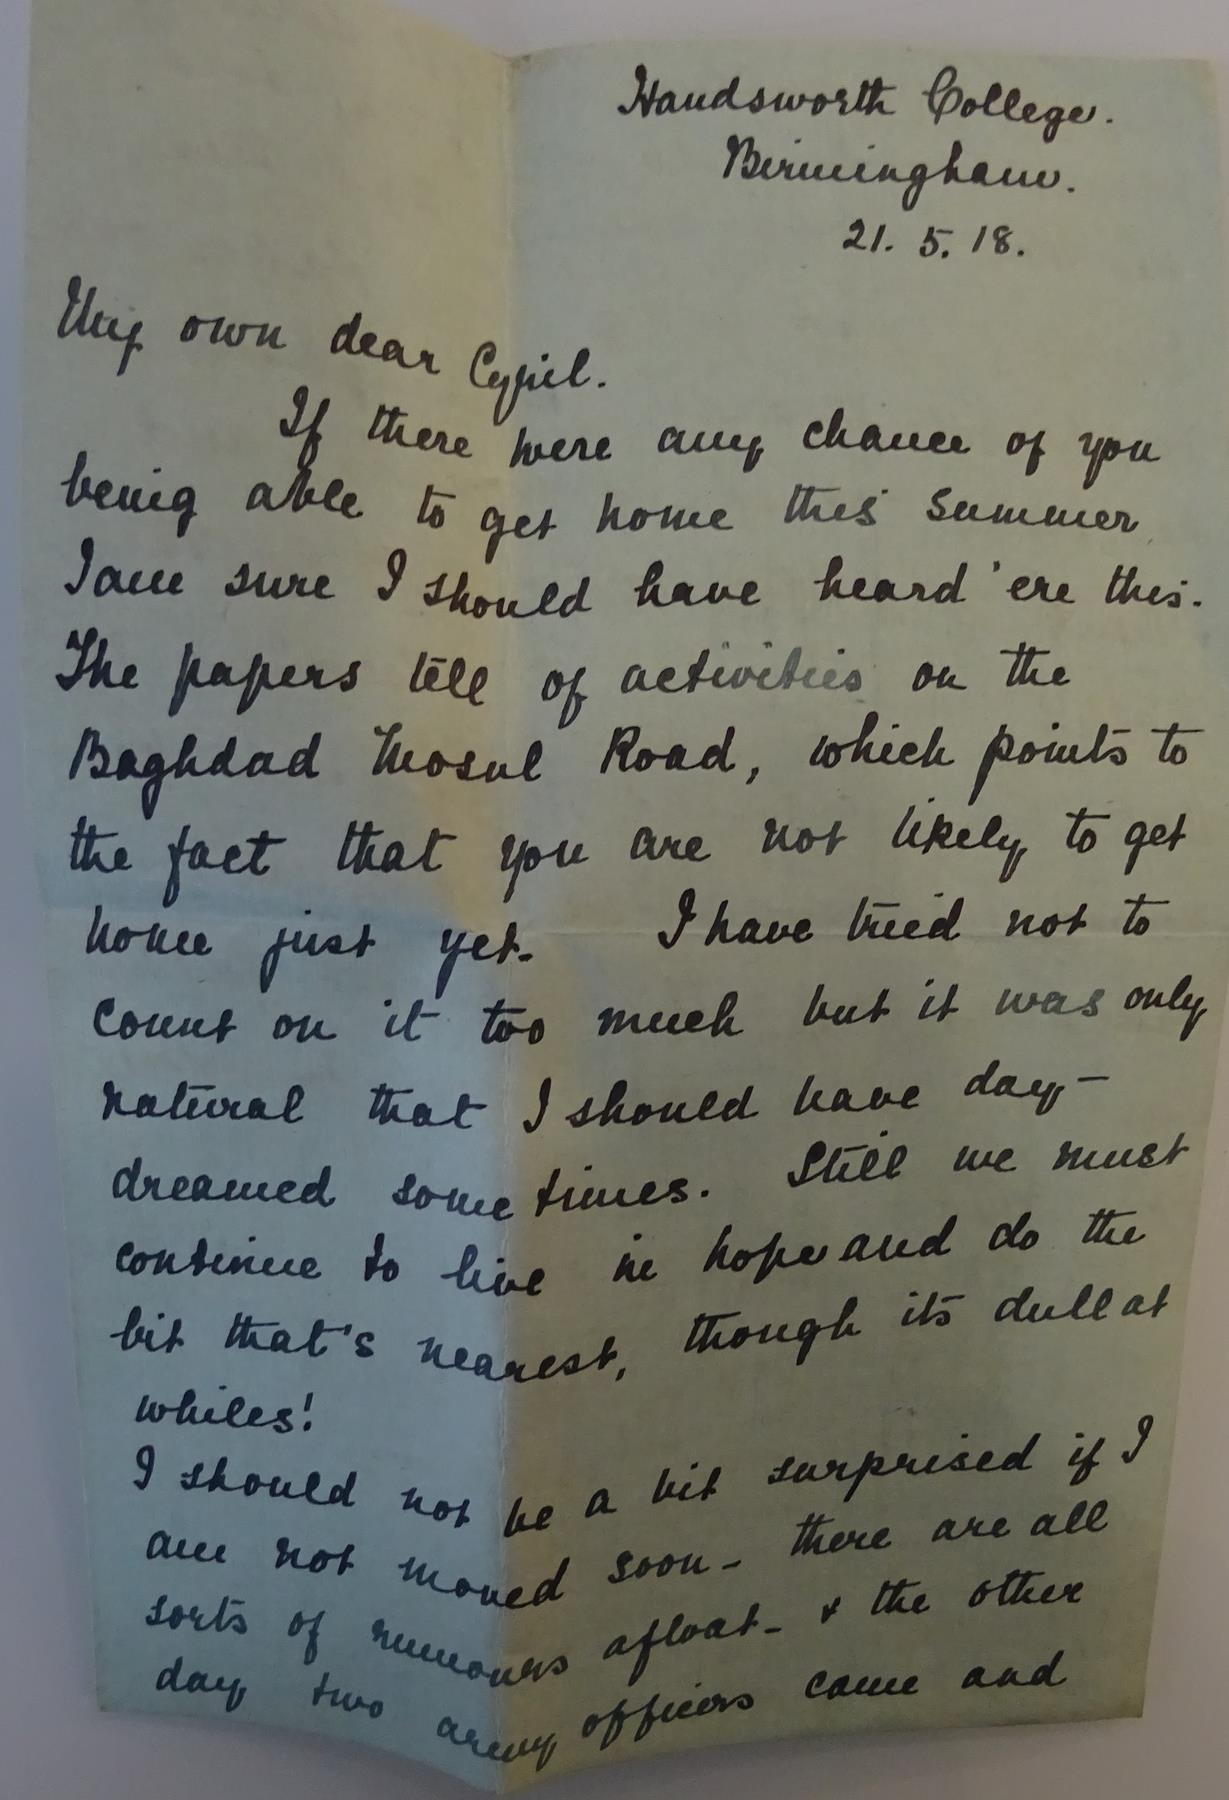 Handsworth College.
Birmingham.
21. 5. 18.
My own dear Cyril.
If there were any chance of you
being able to get home this summer
I am sure I should have heard 'ere this.
The papers tell of activities on the
Baghdad Mosul Road, which points to
the fact that you are not likely to get
home just yet. I have tried not to
count on it too much but it was only
natural that I should have day-
dreamed sometimes. Still we must
continue to live in hope and do the
bit that's nearest, though its dull at
whiles!
I should not be a bit surprised if I
am not moved soon - there are all
sorts of rumours afloat - & the other
day two army officers came and